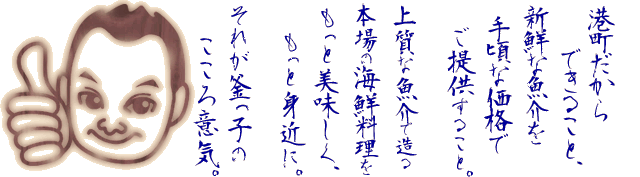 港町だから
できること、
新鮮な魚介を
手頃な価格で
ご提供すること。
上質な魚介で造る
本場の海鮮料理を
もっと美味しく、
もっと身近に。
それが釜っ子の
こころ意気。